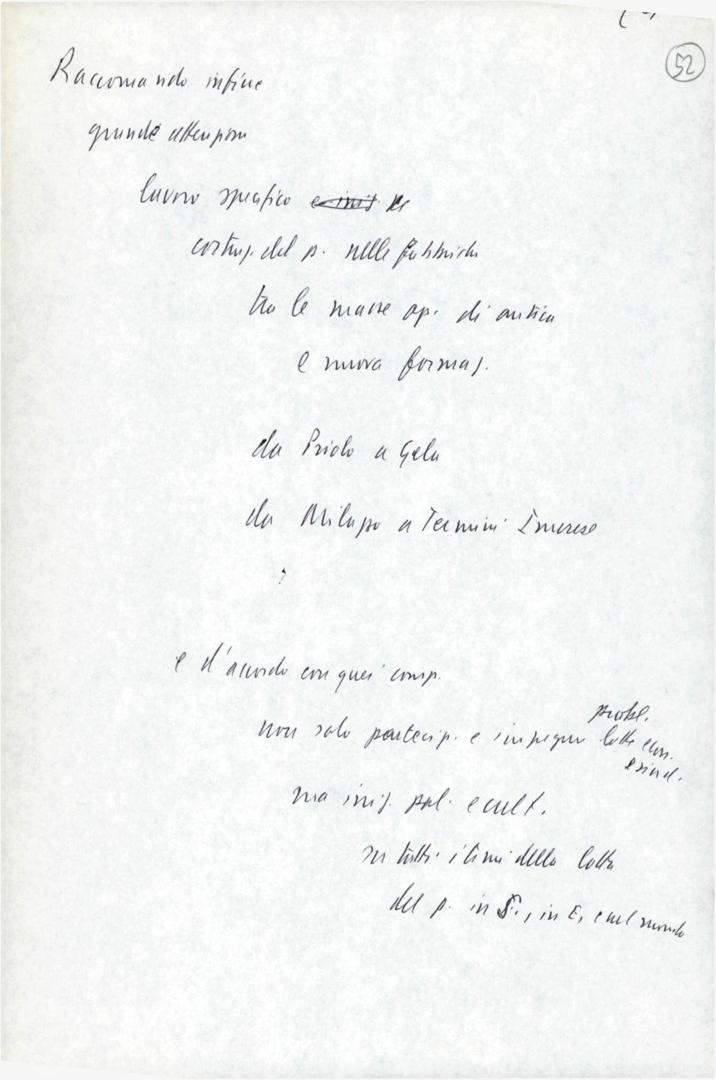 52
Raccomando infine
grande attenzione
lavoro specifico e iniz. di
costruz. del p. nelle fabbriche
tra le masse op. di antica
e nuova formaz.
da Priolo a Gela
da Milazzo a Termini Imerese
e d'accordo con quei comp.
probl.
non solo partecip. e impegno lotte econ.
e sind.
ma iniz. pol. e cult.
su tutti i temi della lotta
del p. in S., in E, e nel mondo